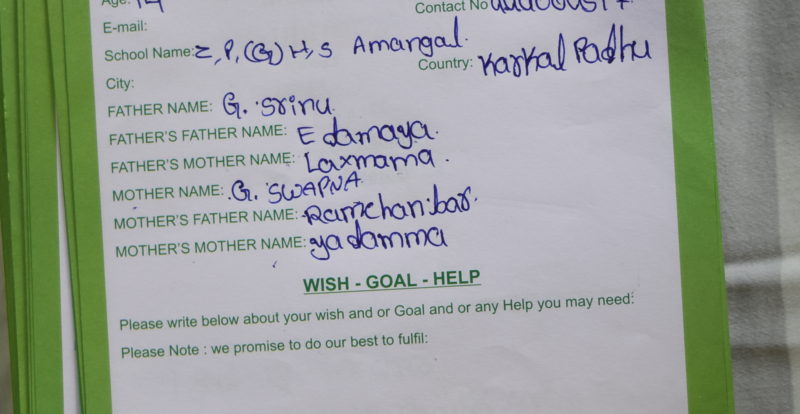 Age: 14
Contact No
E-mail:
School Name: Z, P, (G) H, S Amangal.
Country: Karkal Padhu
City:
FATHER NAME: G. Srinu.
FATHER'S FATHER NAME: Edamaya.
FATHER'S MOTHER NAME: Laxmama.
MOTHER NAME: G. SWAPNA
MOTHER'S FATHER NAME: Ramchanibar.
MOTHER'S MOTHER NAME: yadamma
WISH - GOAL - HELP
Please write below about your wish and or Goal and or any Help you may need:
Please Note : we promise to do our best to fulfil: